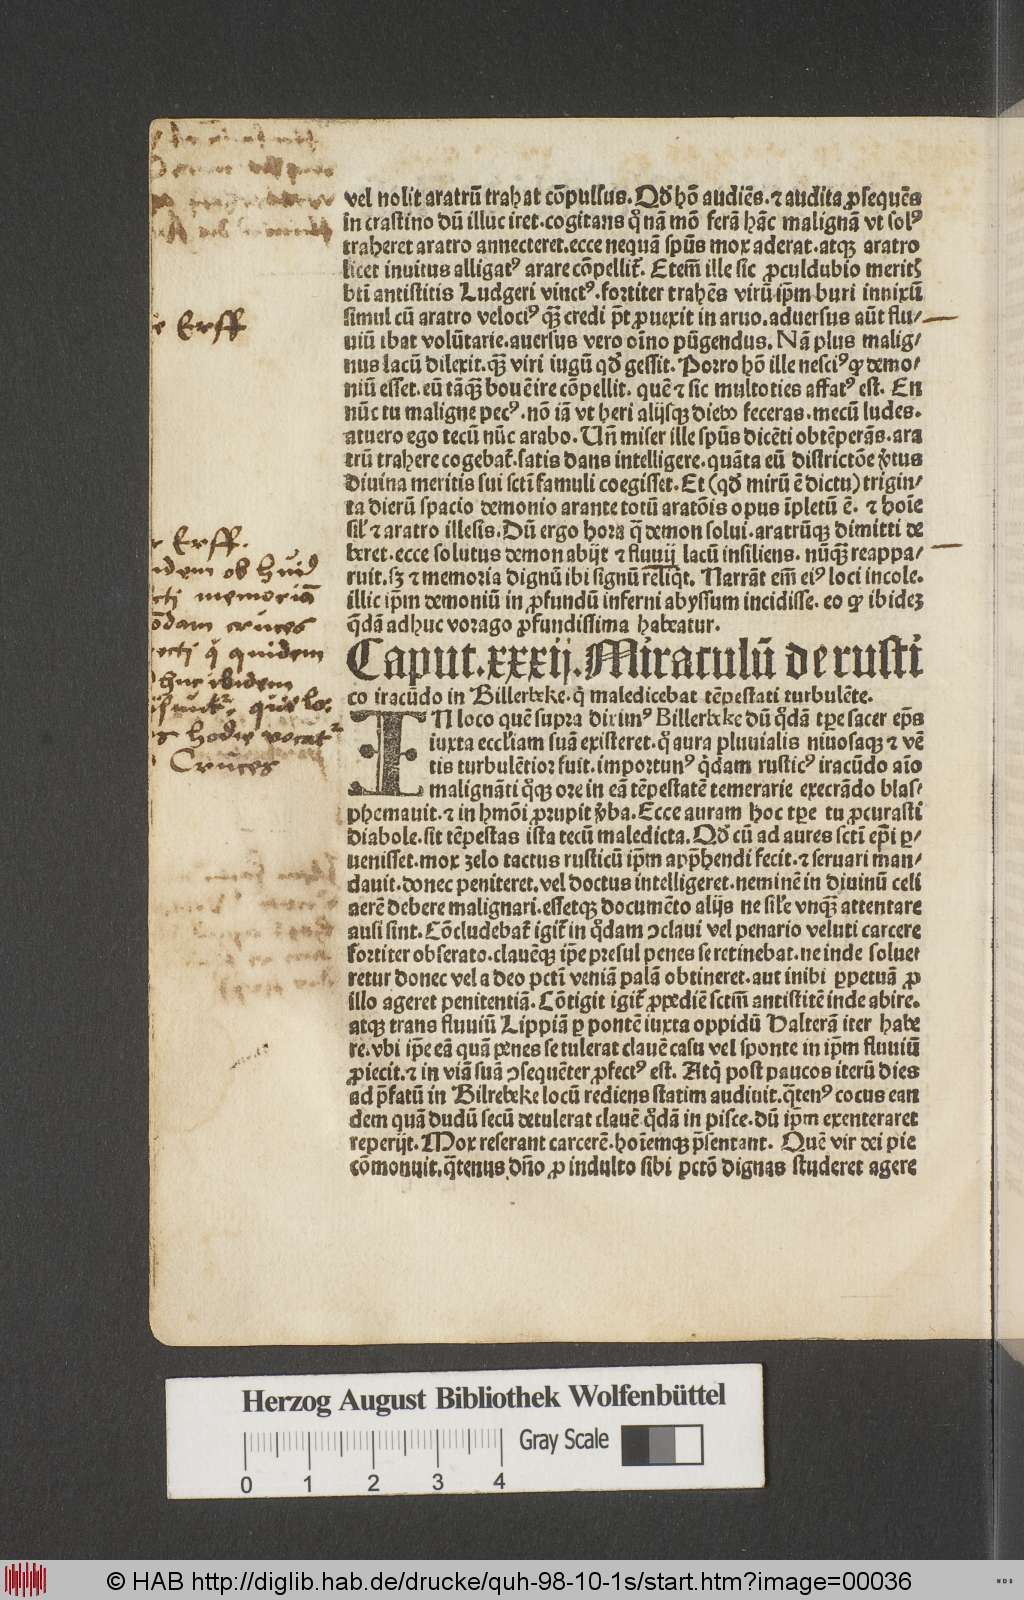 vel nolit aratrū trahat cōpulsus. Qđ hō audiēs. ⁊ audita ꝓsequēs
in crastino dū illuc iret. cogitans qͦ nā mō ferā hāc malignā vt solꝰ
traheret aratro annecteret. ecce nequā spūs mox aderat. atqꝫ aratro
licet inuitus alligatꝰ arare cōpellit̄. Etem̄ ille sic ꝓculdubio merit
bt̄i antistitis Ludgeri vinctꝰ. fortiter trahēs virū ip̄m buri innixū
simul cū aratro velociꝰ qͣꝫ credi p̄t ꝓuexit in aruo. aduersus aūt flu⸗
uiū ibat volūtarie. auersus vero oīno pūgendus. Nā plus malig⸗
nus lacū dilexit. qͣꝫ viri iugū qđ gessit. Porro hō ille nesciꝰ ꝙ demo⸗
niū esset. eū tāqͣꝫ bouē ire cōpellit. quē ⁊ sic multoties affatꝰ est. En
nūc tu maligne pecꝰ. nō iā vt heri alijsqꝫ dieb feceras. mecū ludes.
atuero ego tecū nūc arabo. Un̄ miser ille spūs dicēti obtēperās. ara
trū trahere cogebat̄. satis dans intelligere. quāta eū districtōe v̄tus
diuina meritis sui sct̄i famuli coegisset. Et (qđ mirū ē dictu) trigin⸗
ta dierū spacio demonio arante totū aratōis opus īpletū ē. ⁊ hoīe
sil̄ ⁊ aratro illesis. Dū ergo hora qͣ demon solui. aratrūqꝫ dimitti de
beret. ecce solutus demon abijt ⁊ fluuij lacū insiliens. nūqͣꝫ reappa⸗
ruit. sꝫ ⁊ memoria dignū ibi signū reliqͥt. Narrāt em̄ eiꝰ loci incole.
illic ip̄m demoniū in ꝓfundū inferni abyssum incidisse. eo ꝙ ibideꝫ
qͣdā adhuc vorago ꝓfundissima habeatur.
Caput. xxxij. Miraculū de rusti
co iracūdo in Billerbeke. qͥ maledicebat tēpestati turbulēte.
IN loco quē supra diximꝰ Billerbeke dū qͦdā tp̄e sacer ep̄s
iuxta eccl̄iam suā existeret. qͦ aura pluuialis niuosaqꝫ ⁊ vē
tis turbulētior fuit. importunꝰ qͥdam rusticꝰ iracūdo aīo
malignāti qͦqꝫ ore in eā tēpestatē temerarie execrādo blas⸗
phemauit. ⁊ in hmōi ꝓrupit v̄ba. Ecce auram hoc tp̄e tu ꝓcurasti
diabole. sit tēpestas ista tecū maledicta. Qđ cū ad aures sct̄i ep̄i ꝑ⸗
uenisset. mox zelo tactus rusticū ip̄m app̄hendi fecit. ⁊ seruari man⸗
dauit. donec peniteret. vel doctus intelligeret. neminē in diuinū celi
aerē debere malignari. essetqꝫ documēto alijs ne sil̄e vnqͣꝫ attentare
ausi sint. Cōcludebat̄ igit̄ in qͦdam ꝯclaui vel penario veluti carcere
fortiter obserato. clauēqꝫ ip̄e presul penes se retinebat. ne inde soluer
retur donec vel a deo pct̄i veniā palā obtineret. aut inibi ꝑpetuā ꝓ
illo ageret penitentiā. Cōtigit igit̄ ꝓpediē sctm̄ antistitē inde abire.
atqꝫ trans fluuiū Lippiā ꝑ pontē iuxta oppidū Halterā iter habe
re. vbi ip̄e eā quā penes se tulerat clauē casu vel sponte in ip̄m fluuiū
ꝓiecit. ⁊ in viā suā ꝯsequēter ꝓfectꝰ est. Atqͥ post paucos iterū dies
ad p̄fatū in Bilrebeke locū rediens statim audiuit. qͣtenꝰ cocus ean
dem quā dudū secū detulerat clauē qͦdā in pisce. dū ip̄m exenteraret
reperijt. Mox reserant carcerē. hoīemqꝫ p̄sentant. Quē vir dei pie
cōmonuit. qͣtenus dn̄o ꝓ indulto sibi pctō dignas studeret agere
Erff
Erff.
idem ob huiꝰ
memoriā
cruces
quidem
ibidem
que lo⸗
hodie vocatʳ
Cruces
Herzog August Bibliothek Wolfenbüttel
Gray Scale
0 1 2 3 4
© HAB http://diglib.hab.de/drucke/quh-98-10-1s/start.htm?image=00036